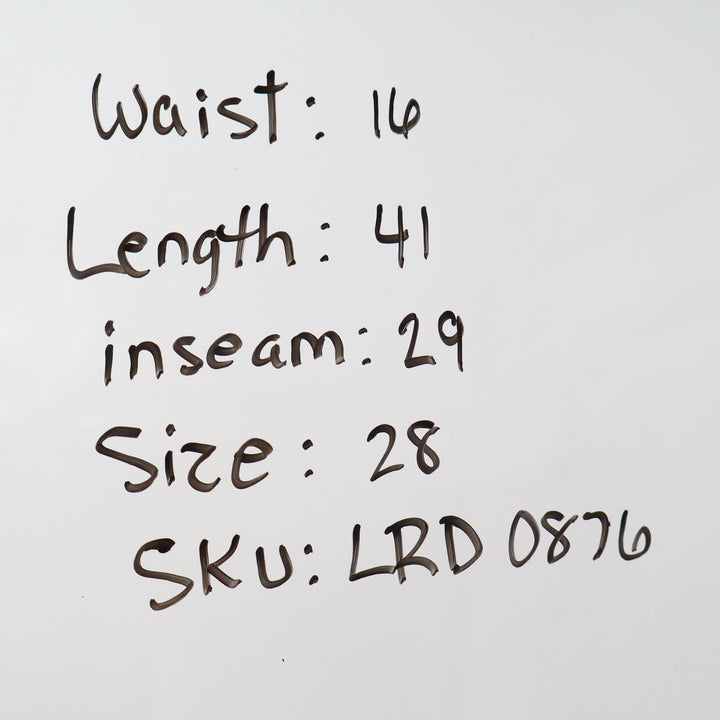 Waist: 16
Length: 41
inseam: 29
Size: 28
SKU: LRD 0876